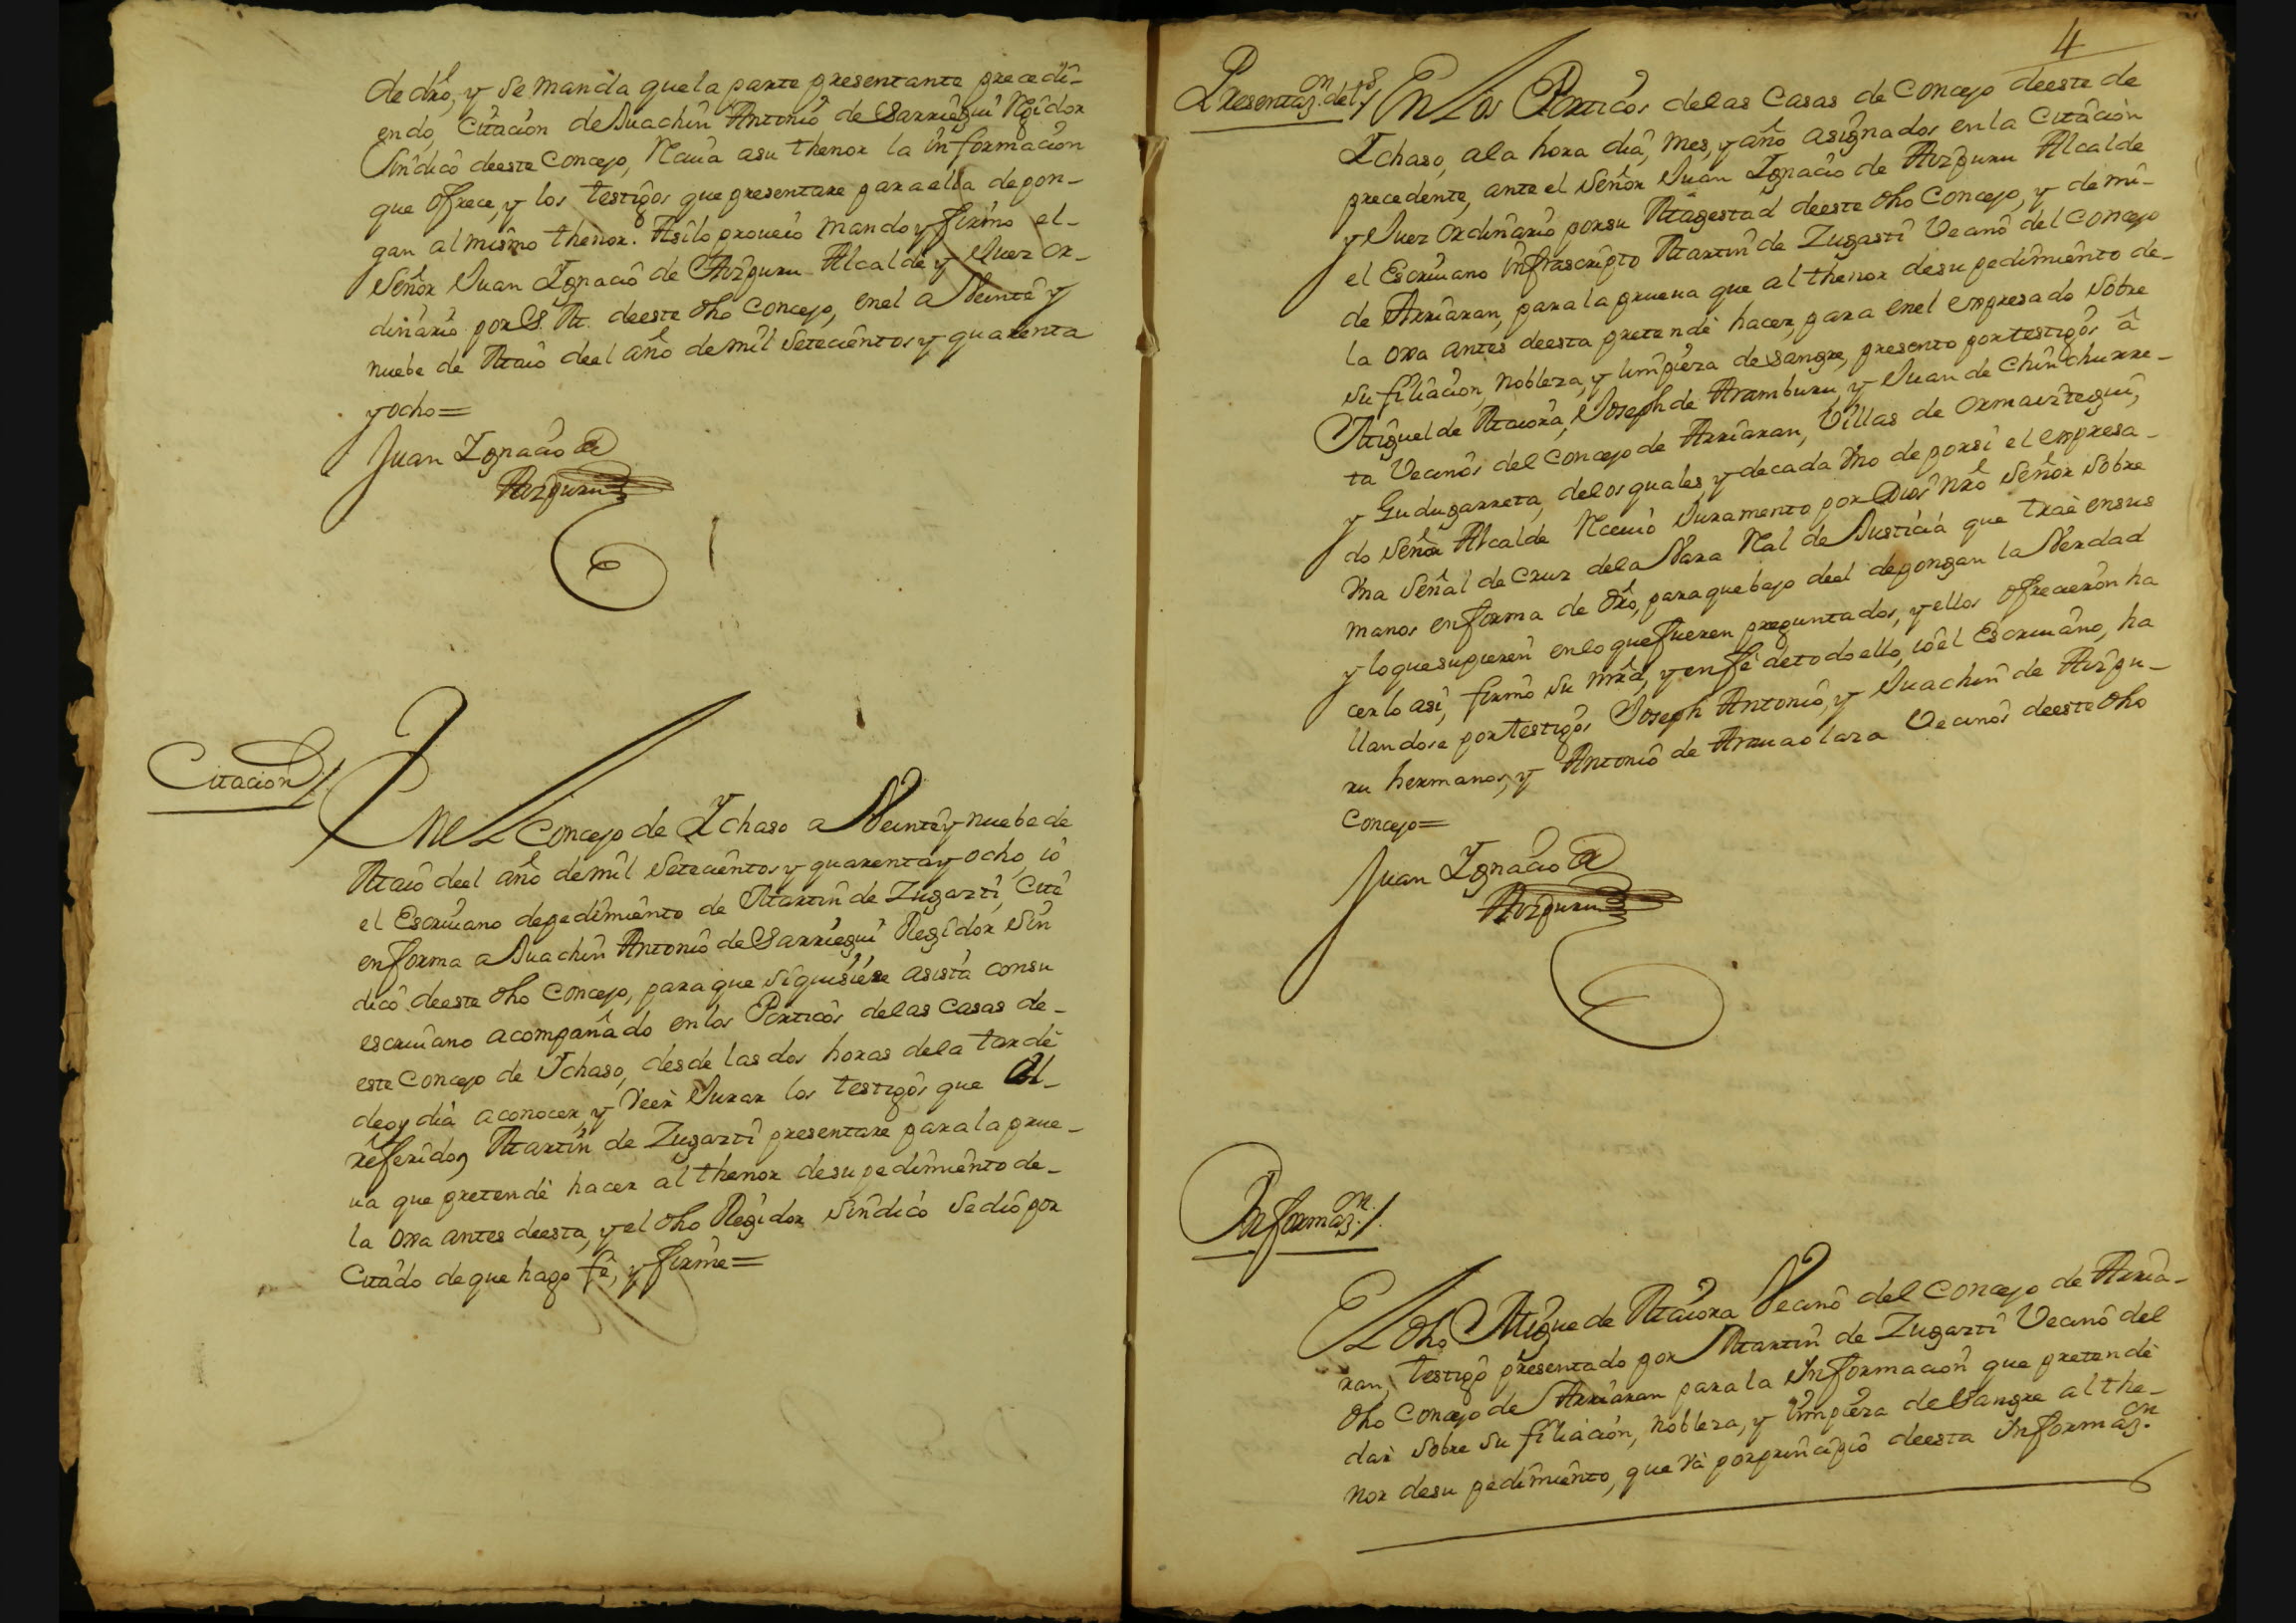 de dro, y se manda que la parte presentante precedi-
endo, Citacion de Juachin Antonio de Sarriegui Rgidor
Sindico deeste Concejo, Reciua asu thenor la informacion
que ofrece, y los testigos que presentare para ella depon-
gan al mismo thenor. Asilo proueio mando y firmo el-
Señor Juan Ignacio de Aizpuru Alcalde y Juez or-
dinario por S. M. deeste dho Concejo, enel a Veinte y
nuebe de Maio deel año de mil setecientos y quarenta
y ocho=
Juan Ignacio de
Aizpuru
Citacion/
Enel Concejo de Ichaso a Veinte y nuebe de
Maio deel año de mil setecientos y quarenta y ocho, io
el Escriuano depedimiento de Martin de Zugasti, Cite
en forma a Juachin Antonio de Sarriegui Regidor Sin
dico deeste dho Concejo, para que siquisiere asista consu
escriuano acompañado en los Porticos delas Casas de-
este Concejo de Ichaso, desde las dos horas dela tarde
deoy dia aconocer, y Veer Jurar los testigos que el-
referido, Martin de Zugarti presentare para la prue-
ua que pretende hacer al thenor desu pedimiento de-
la ora antes deesta, y el dho Regidor Sindico sedio por
Citado de que hago fe, y firme=
4
Presentaz.on de t.s/ En Los Porticos delas Casas de Concejo deeste de
Ichaso, ala hora dia, mes, y año asignados en la Citacion
precedente, ante el Señor Juan Ignacio de Aizpuru Alcalde
y Juez ordinario porsu Magestad deeste dho Concejo, y demi-
el Escriuano infrascripto Martin de Zugasti Vecino del Concejo
de Arriaran, para la prueua que al thenor desu pedimiento de-
la ora antes deesta pretende hacer, para enel expresado sobre
su filiacion, nobleza, y limpieza de sangre, presento por testigos a
Miguel de Maiora, Joseph de Aramburu, y Juan de Chinchurre-
ta Vecinos del Concejo de Arriaran, Villas de Ormaiztegui,
y Gudugarreta, delos quales y de cada Vno de porsi el expresa-
do Señor Alcalde Receuio Juramento por Dios Nro Señor sobre
Vna Señal de Cruz dela Vara Real de Justicia que trae ensus
manos en forma de dro, para que bajo deel depongan la Verdad
y lo que supieren en lo que fueren preguntados, y ellos ofrecieron ha
cerlo asi, firmo su mrd, y en fe de todo ello, io el Escriuano, ha
llandose por testigos Joseph Antonio, y Juachin de Aizpu-
ru hermanos, y Antonio de Arauaolaza Vecinos deeste dho
Concejo=
Juan Ignacio de
Aizpuru
Informaz.on/.
El dho Migue de Maiora Vecino del Concejo de Arria-
ran, testigo presentado por Martin de Zugarti Vecino del
dho Concejo de Arriaran para la Informacion que pretende
dar sobre su filiacion, nobleza, y limpieza de Sangre al the-
nor desu pedimiento, que va por principio deesta Informaz.on